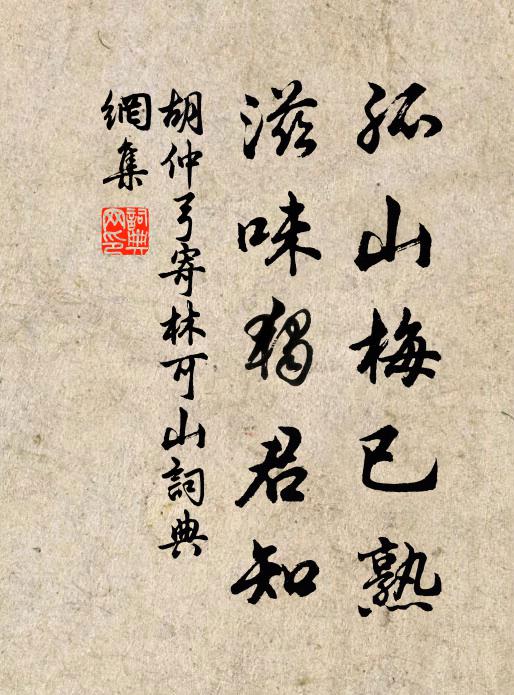 孤山梅已熟
滋味獨君知
胡仲弓寄林可山詞典
網集
詞典
網印